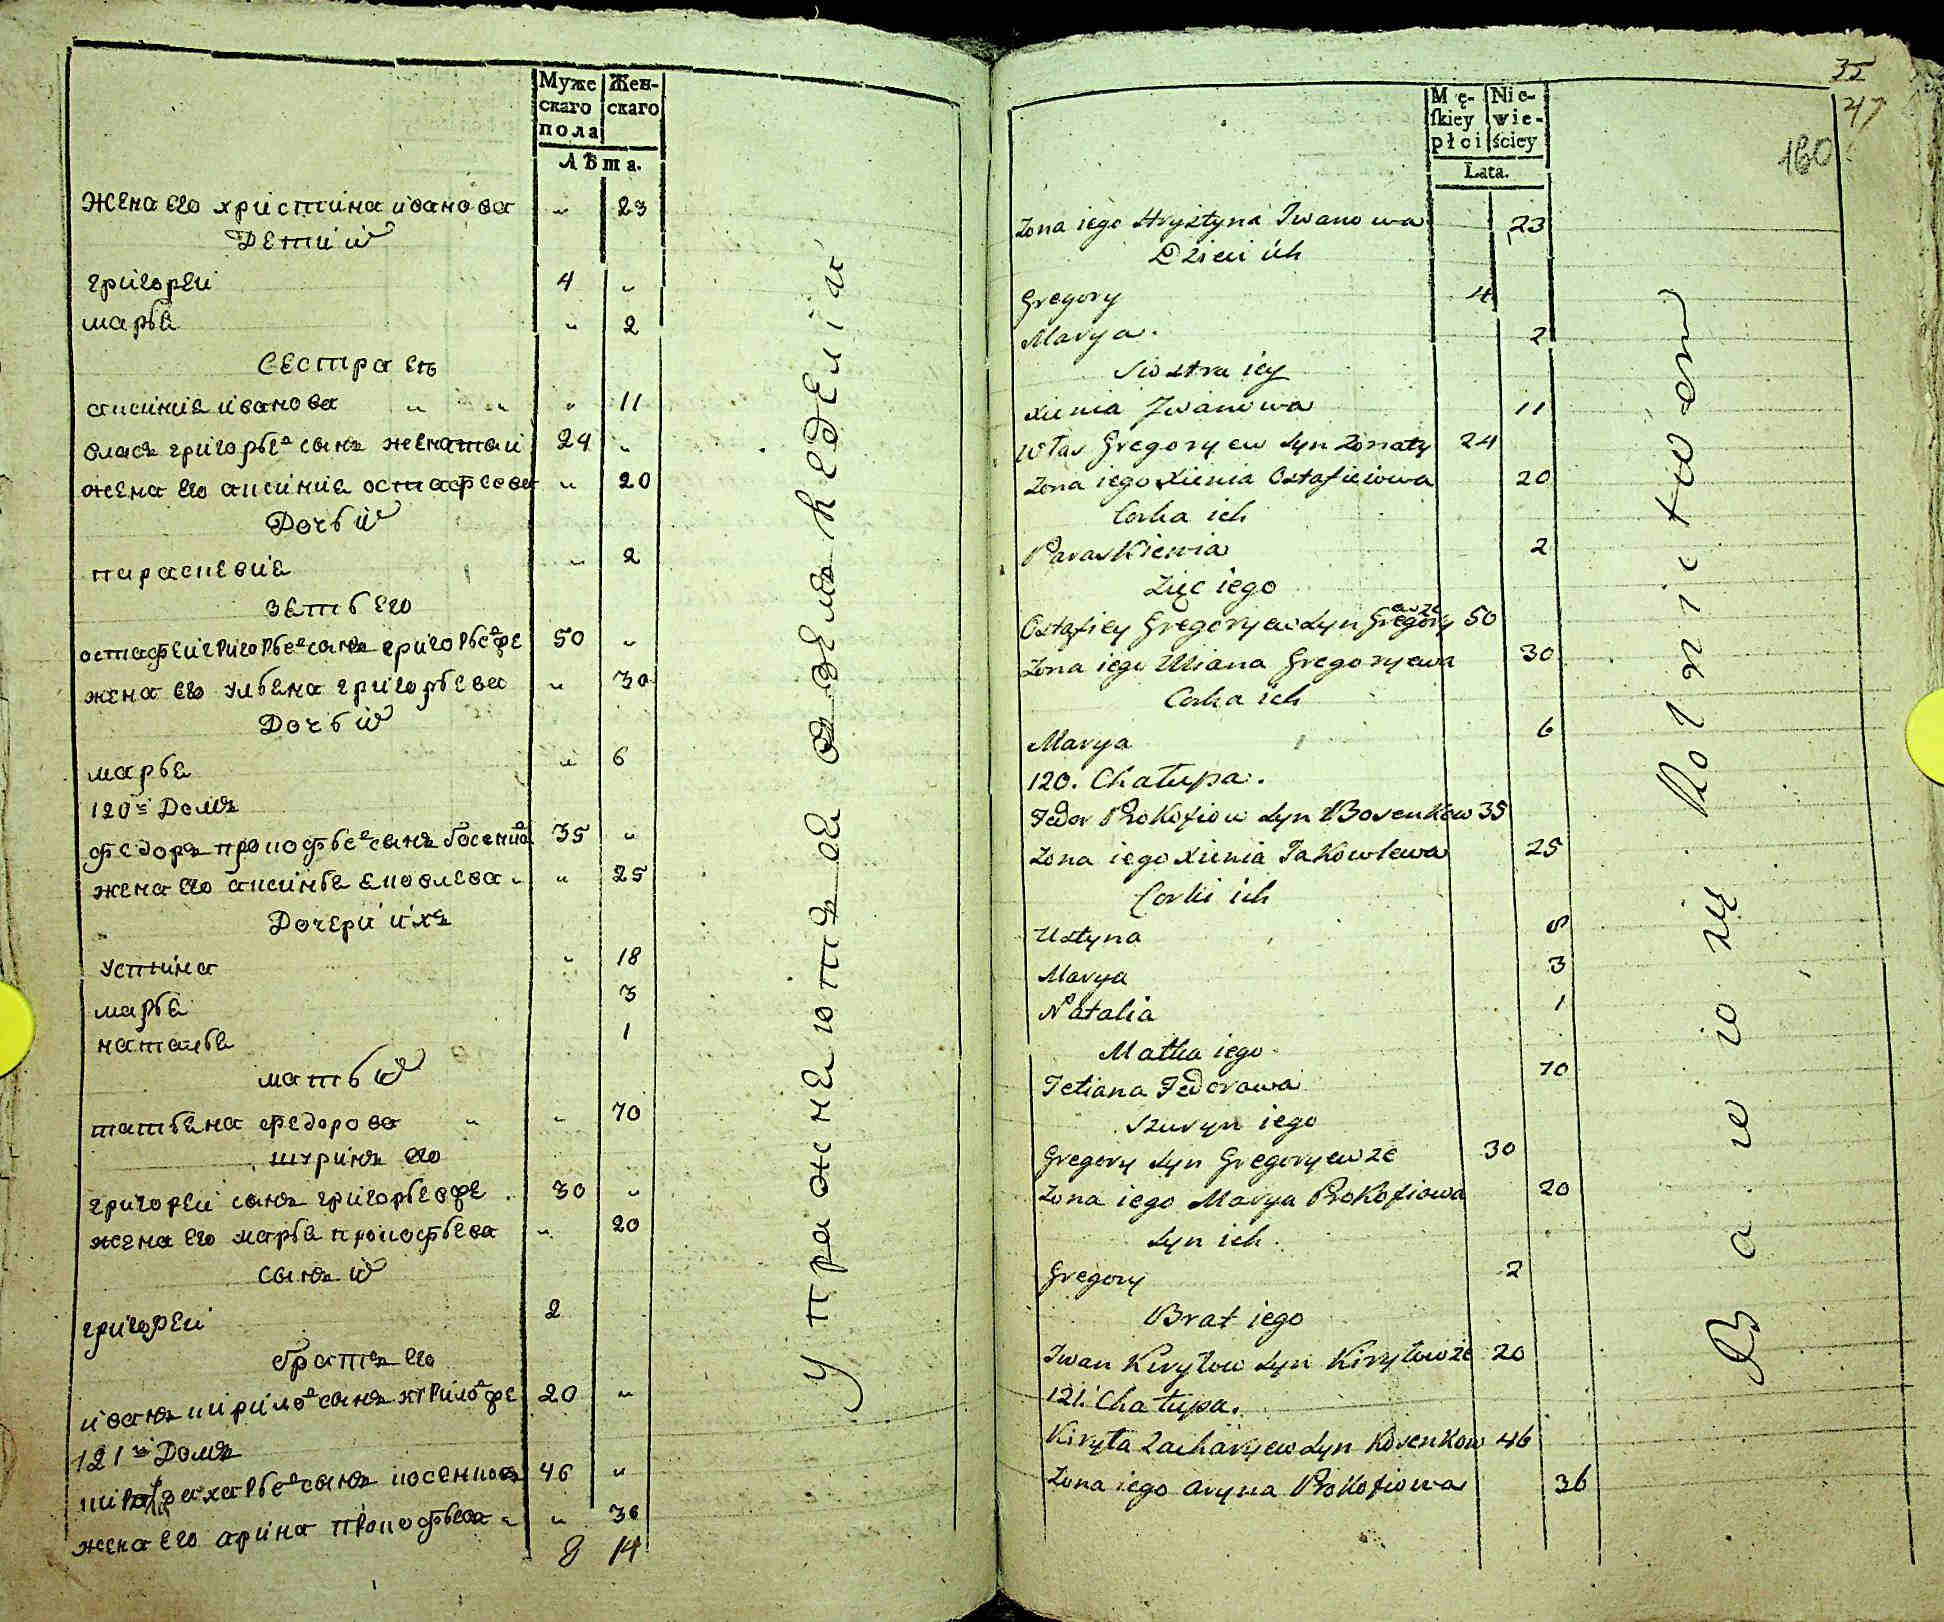 Муже Жен-
скаго скаго
пола
Лѣта.
жена его христина иванова " 23
Дети иⷯ
григореи 4 "
марья " 2
Сестра ея
аксиния иванова " 11
власъ григорьеⷡ сынъ женатаи 24 "
жена его аксиния остафеева " 20
Дочь иⷯ
параскевия " 2
зеть его
остафеи григорьеⷡ сынъ григорьеⷡ же 50 "
жена его ульяна григорьева " 30
Дочь иⷯ
марья " 6
120й Домъ
федоръ прокофьеⷡ сынъ 35 "
жена его аксинья яковлева " 25
Дочери ихъ
устина " 18
марья 3
наталья 1
мать
татьяна федорова " 70
шуринъ его
григореи сынъ григорьевже 30 "
жена его марья прокофьева " 20
сынъ иⷯ
григореи 2
братъ его
иванъ кирилоⷡ сынъ кирилоⷡ же 20 "
121й Домъ
захарьеⷡ сынъ косенковъ 46 "
жена его арина прокофьева " 36
8 14
упражняютца въ земледелiи
35
47
160
Mę- Nie-
ſkiey wie-
płci ściey
Lata.
Zona iego Hrystyna Iwanowa 23
Dzieci ich
Gregory 4
Marya. 2
Siostra iey
Xienia Iwanowa 11
Włas Gregoryew syn Zonaty 24
Zona iego Xienia Ostafieiowa 20
Corka ich
Paraskiewia 2
Zięc iego
Ostafiey Gregoryew syn Gregoryewze 50
Zona iego Uliana Gregoryewa 30
Corka ich
Marya 6
120. Chałupa.
Fedor Prokofiow syn Bosenkow 35
Zona iego Xienia Jakowlewa 25
Corki ich
Ustyna 8
Marya 3
Natalia 1
Matka iego
Tetiana Fedorowa 70
Szuryn iego
Gregory syn Gregoryewze 30
Zona iego Marya Prokofiowa 20
Syn ich
Gregory 2
Brat iego
Iwan Kiryłow syn Kiryłowze 20
121. Chałupa.
Kiryła Zacharyew syn Kosenkow 46
Zona iego Aryna Prokofiowa 36
Bawio się Rolnictwem